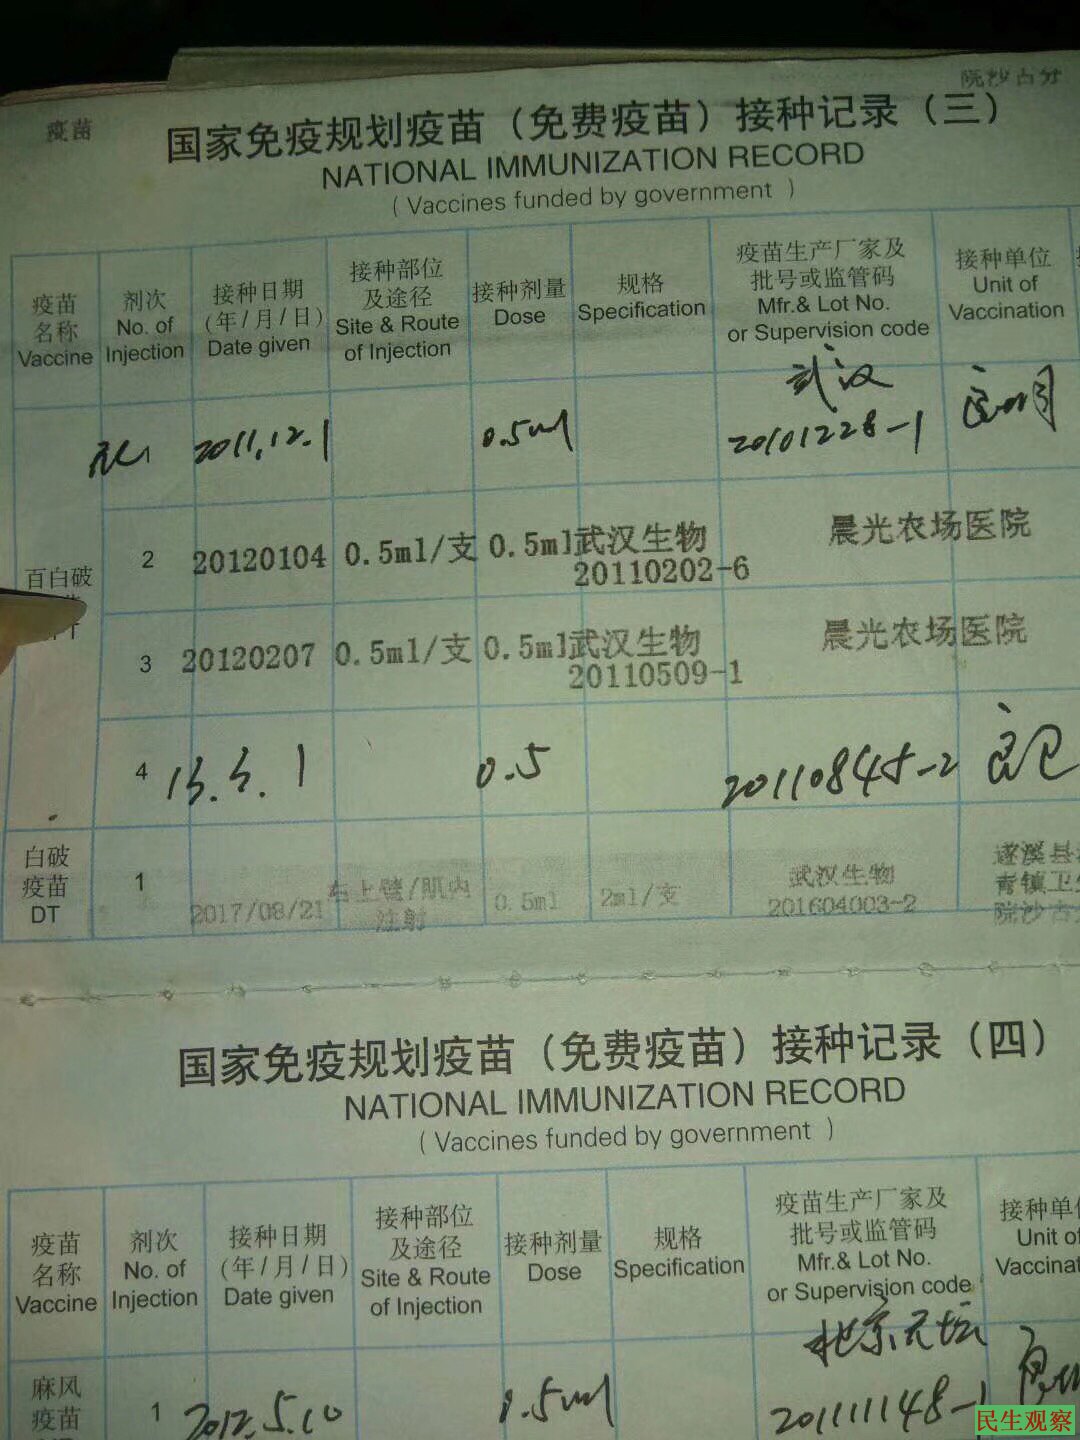 院沙古分
疫苗
国家免疫规划疫苗（免费疫苗）接种记录（三）
NATIONAL IMMUNIZATION RECORD
( Vaccines funded by government )
疫苗
名称
Vaccine
剂次
No. of
Injection
接种日期
(年/月/日)
Date given
接种部位
及途径
Site & Route
of Injection
接种剂量
Dose
规格
Specification
疫苗生产厂家及
批号或监管码
Mfr.& Lot No.
or Supervision code
接种单位
Unit of
Vaccination
百白破
2011.12.1
0.5ml
武汉
20101228-1
2
20120104
0.5ml/支
0.5ml
武汉生物
20110202-6
晨光农场医院
3
20120207
0.5ml/支
0.5ml
武汉生物
20110509-1
晨光农场医院
4
0.5
20110845-2
白破
疫苗
DT
1
2017/08/21
右上臂/肌内
注射
0.5ml
2ml/支
武汉生物
201604003-2
遂溪县
青镇卫生
院沙古
国家免疫规划疫苗（免费疫苗）接种记录（四）
NATIONAL IMMUNIZATION RECORD
( Vaccines funded by government )
疫苗
名称
Vaccine
剂次
No. of
Injection
接种日期
(年/月/日)
Date given
接种部位
及途径
Site & Route
of Injection
接种剂量
Dose
规格
Specification
疫苗生产厂家及
批号或监管码
Mfr.& Lot No.
or Supervision code
接种单
Unit of
Vaccinat
麻风
疫苗
1
2012.5.10
0.5ml
北京天坛
201111148-1
民生观察